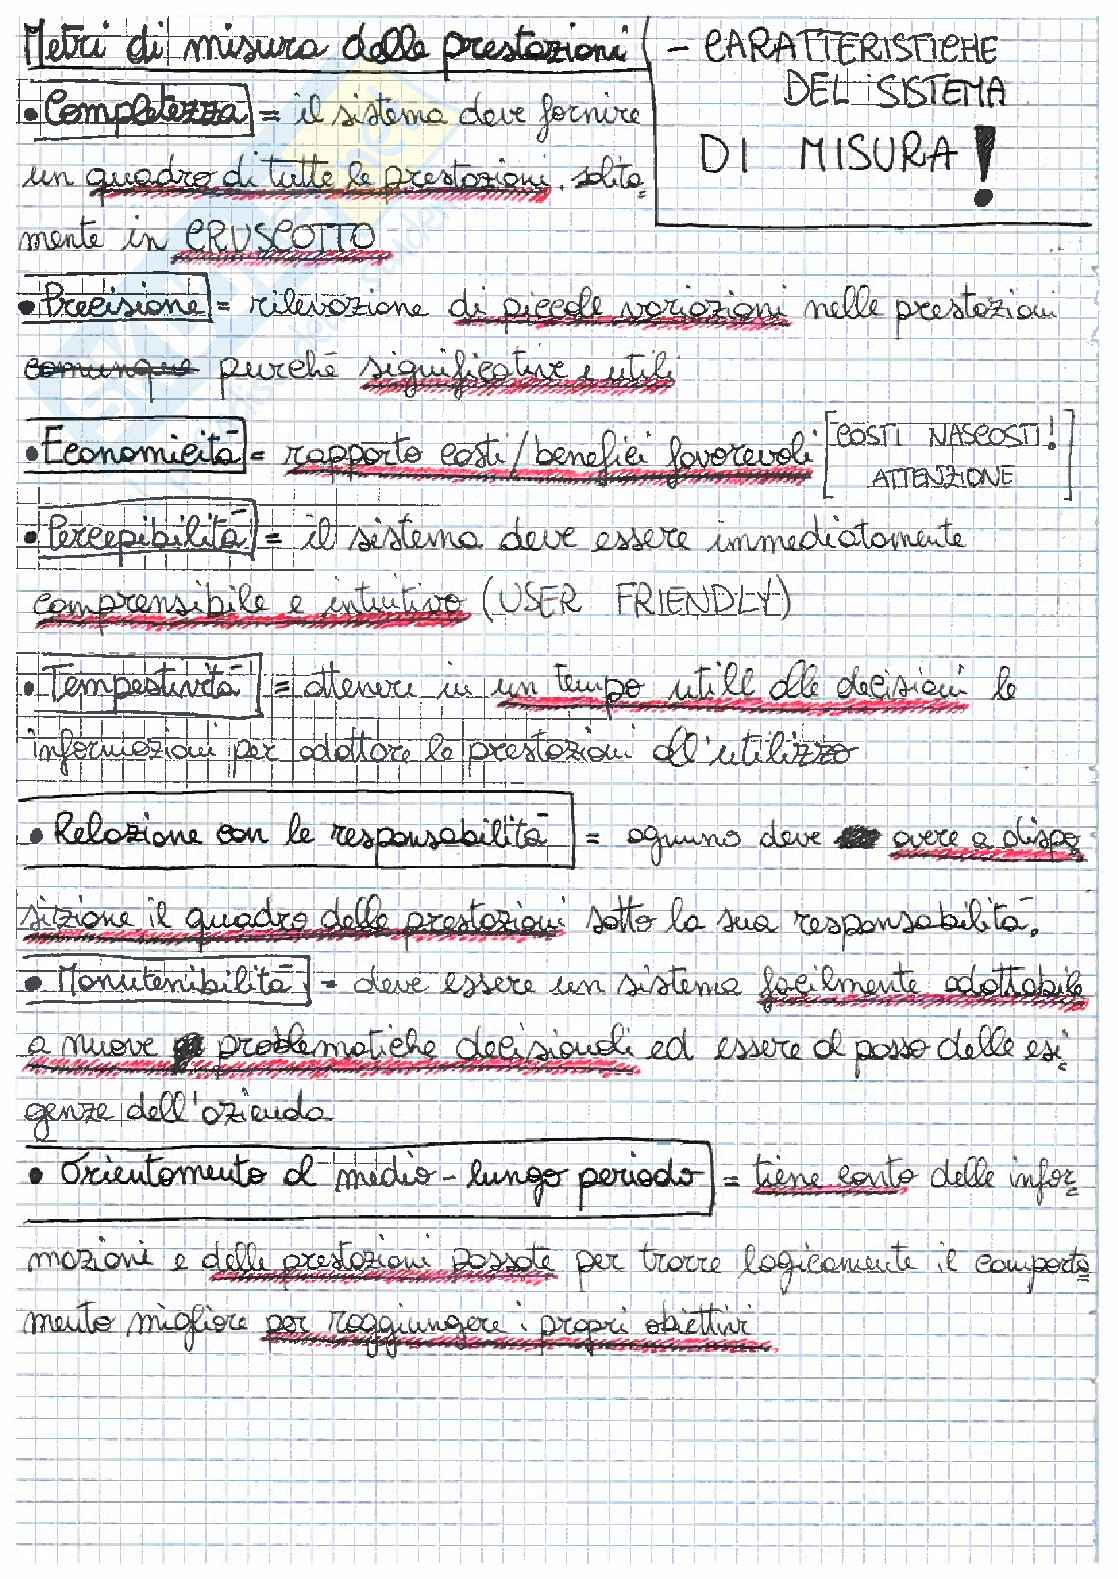 Metri di misura delle prestazioni
- CARATTERISTICHE
DEL SISTEMA
DI MISURA!
• Completezza = il sistema deve fornire
un quadro di tutte le prestazioni. solita=
mente in CRUSCOTTO
• Precisione = rilevazione di piccole variazioni nelle prestazioni
comunque purché significative e utili
• Economicità = rapporto costi/benefici favorevoli [COSTI NASCOSTI!
ATTENZIONE]
• Percepibilità = il sistema deve essere immediatamente
comprensibile e intuitivo (USER FRIENDLY)
• Tempestività = ottenere in un tempo utile alle decisioni le
informazioni per adottare le prestazioni all'utilizzo
• Relazione con le responsabilità = ognuno deve avere a dispo
sizione il quadro delle prestazioni sotto la sua responsabilità.
• Manutenibilità = deve essere un sistema facilmente adattabile
a nuove problematiche decisionali ed essere al passo delle esi
genze dell'azienda
• Orientamento al medio - lungo periodo = tiene conto delle infor=
mazioni e delle prestazioni passate per trarre logicamente il comporta=
mento migliore per raggiungere i propri obiettivi